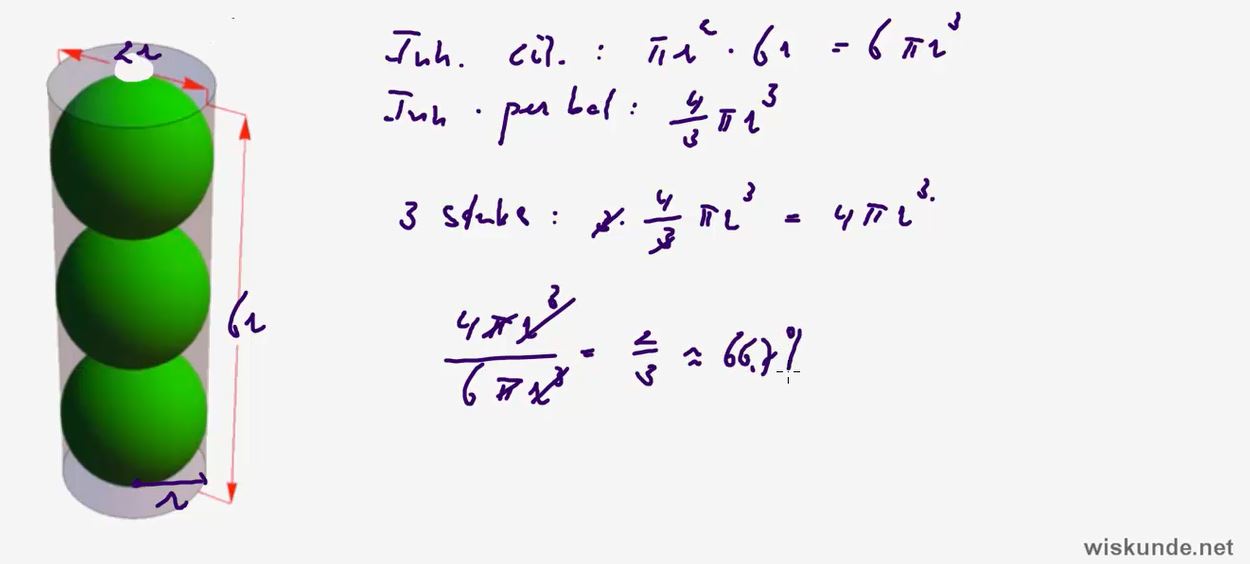 2r
6r
r
Inh. cil. : πr² · 6r = 6πr³
Inh. per bal : 4/3 πr³
3 stuks : 3 · 4/3 πr³ = 4πr³.
4πr³ / 6πr³ = 2/3 ≈ 66.7%
wiskunde.net